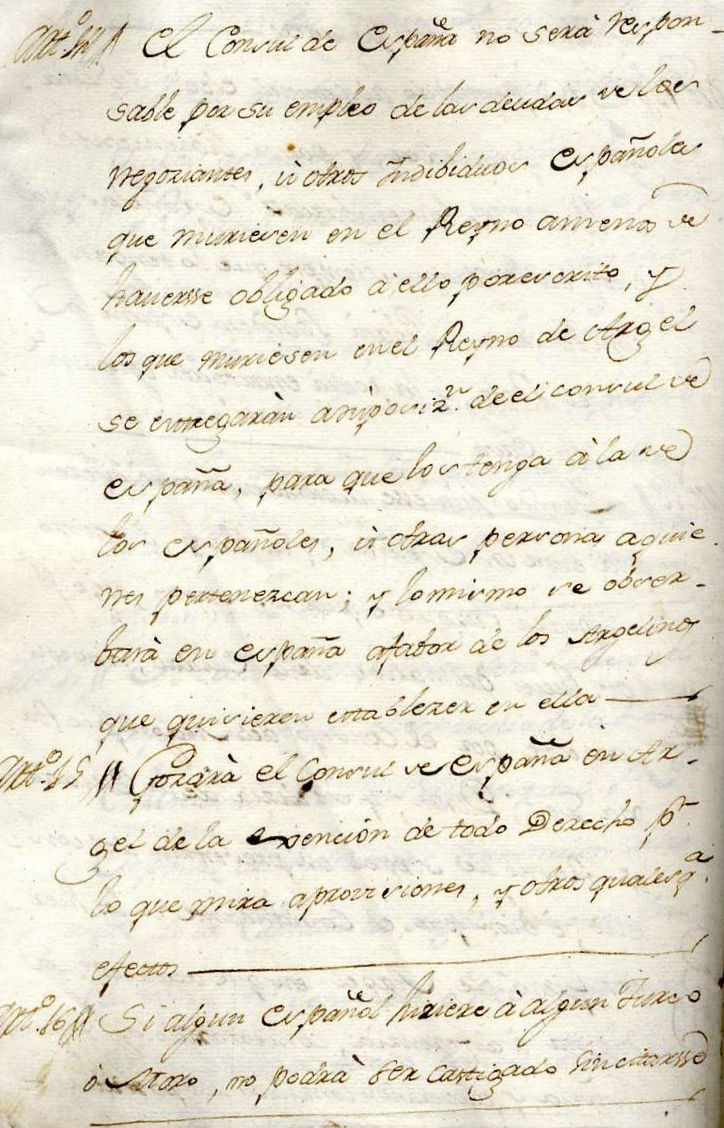 Art.º 14 // El Consul de España no serà respon-
sable por su empleo de las deudas de los
negoziantes, ù otros Yndibiduos Españoles
que murieren en el Reyno amenos de
haversse obligado à ello por escrito, y
los que muriesen en el Reyno de Argel
se entregaràn a disposiz.n de el consul de
españa, para que los tenga à la de
los españoles, ù otras personas a quie-
nes pertenezcan; y lo mismo se obser-
barà en españa afabor de los Argelinos
que quisieren establezer en ella
Art.º 15 // Gozarà el Consul de España en Ar-
gel de la exencion de todo Derecho p.r
lo que mira aprovisiones, y otros qualesq.a
efectos
Art.º 16 // Si algun español hiriere à algun Turco
ò Moro, no podrà ser castigado sin citarsse